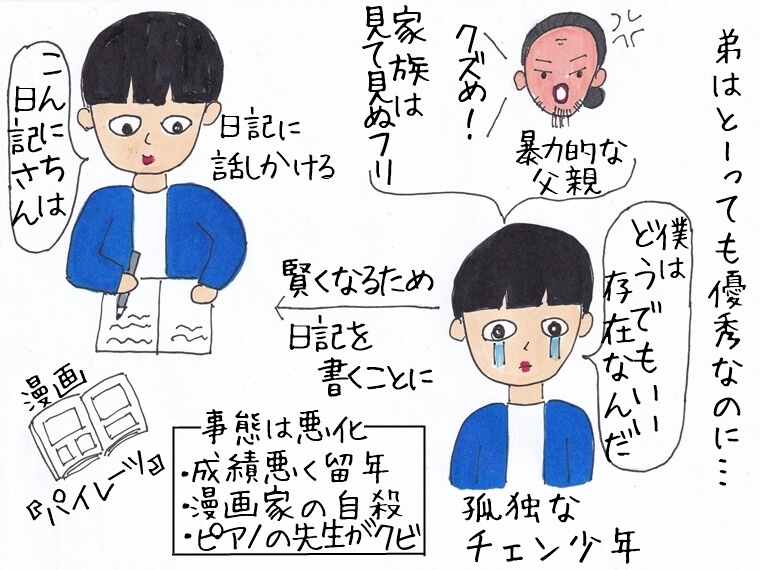 弟はとーっても優秀なのに…
クズめ！
暴力的な
父親
家族は
見て見ぬフリ
僕は
どうでもいい
存在なんだ
孤独な
チェン少年
賢くなるため
日記を
書くことに
日記に
話しかける
こんにちは
日記さん
漫画
『パイレーツ』
事態は悪化
・成績悪く留年
・漫画家の自殺
・ピアノの先生がクビ